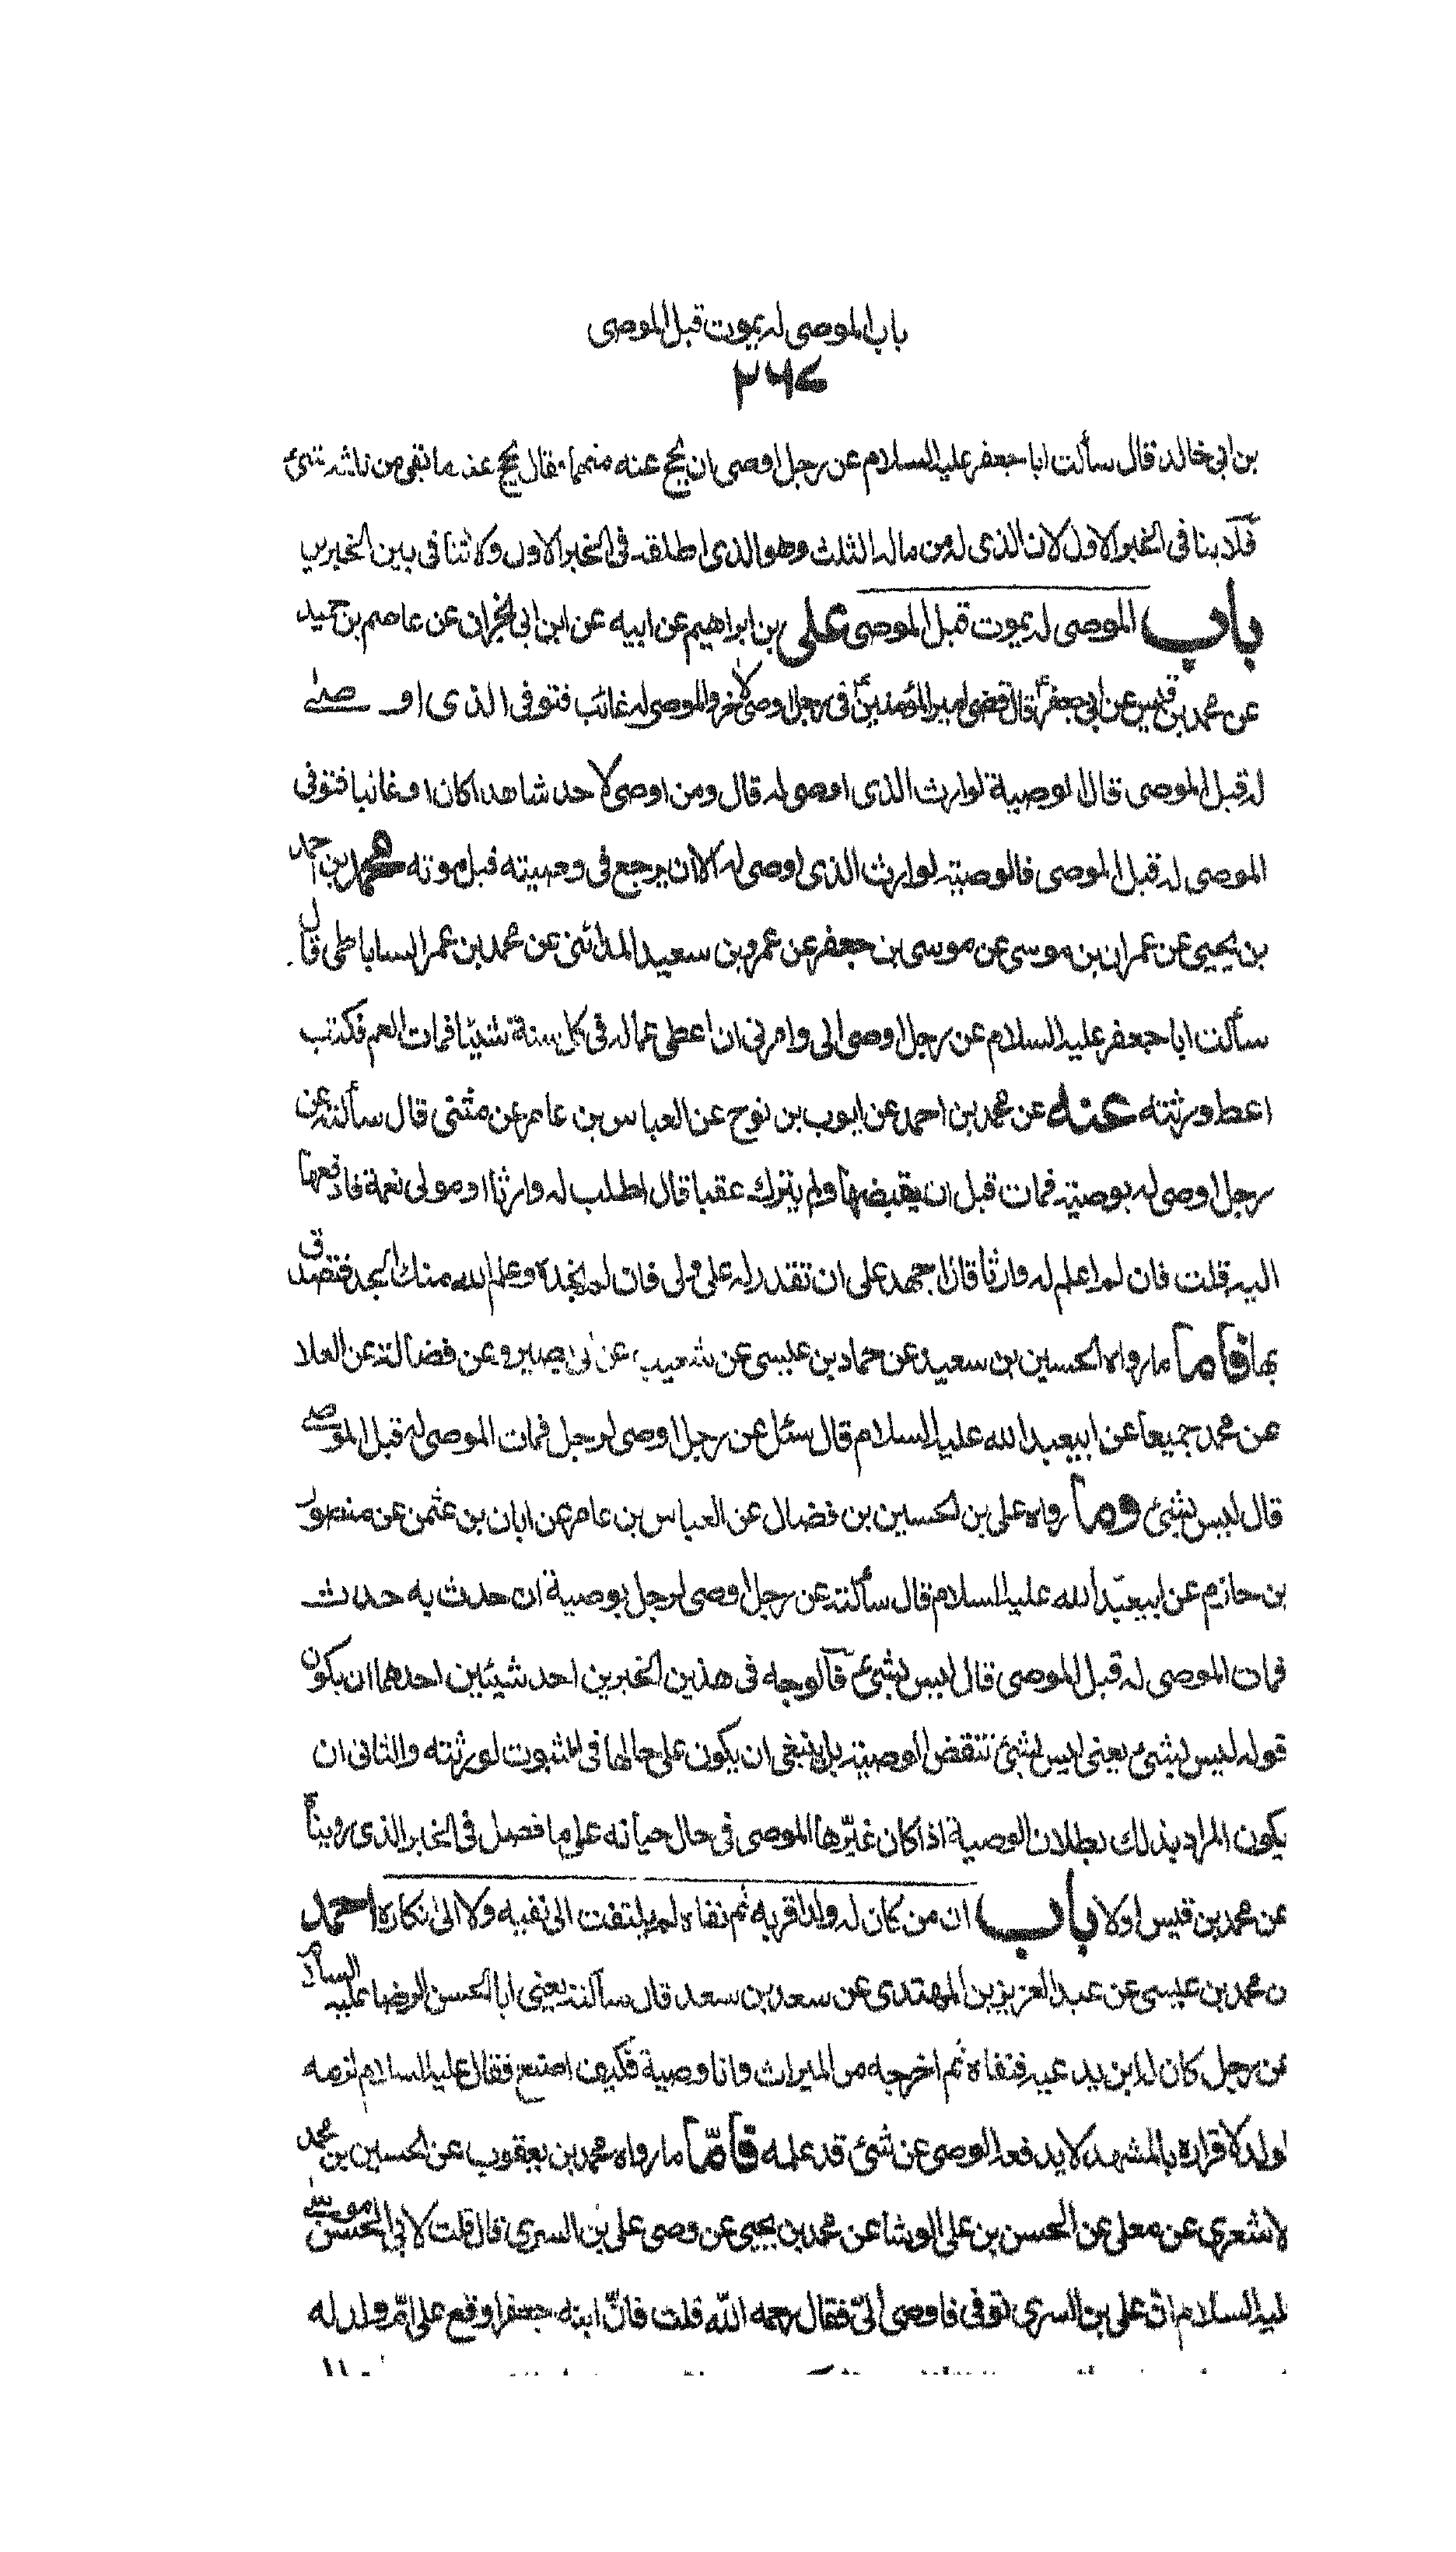 باب الموصى له يموت قبل الموصى
٢٦٧
بن ابى خالد قال سألت ابا جعفر عليه السلام عن رجل اوصى ان يحج عنه منهما فقال يحج عنه ما بقى من ثلثه شئ
فلا ينافى الخبر الاول لان الذى له من ماله الثلث وهو الذى اطلقه فى الخبر الاول ولا تنافى بين الخبرين
باب الموصى له يموت قبل الموصى على بن ابراهيم عن ابيه عن ابن ابى نجران عن عاصم بن حميد
عن محمد بن قيس عن ابى جعفر قال قضى امير المؤمنين فى رجل اوصى لاخر والموصى له غائب فتوفى الذى اوصى
له قبل الموصى قال الوصية لوارث الذى اوصى له قال ومن اوصى لاحد شاهدا كان او غائبا فتوفى
الموصى له قبل الموصى فالوصية لوارث الذى اوصى له الا ان يرجع فى وصيته قبل موته محمد بن احمد
بن يحيى عن عمران بن موسى عن موسى بن جعفر عن عمرو بن سعيد المدائنى عن محمد بن عمر الساباطى قال
سألت ابا جعفر عليه السلام عن رجل اوصى الى وامرنى ان اعطى عماله فى كل سنة شيئا فمات العم فكتب
اعط ورثته عنه عن محمد بن احمد عن ايوب بن نوح عن العباس بن عامر عن مثنى قال سألته عن
رجل اوصى له بوصية فمات قبل ان يقبضها ولم يترك عقبا قال اطلب له وارثا او مولى نعمة فادفعها
اليه قلت فان لم اعلم له وارثا قال اجهد على ان تقدر له على ولى فان لم تجده وعلم الله منك الجد فتصدق
بها فاما ما رواه الحسين بن سعيد عن حماد بن عيسى عن شعيب عن ابى بصير وعن فضالة عن العلا
عن محمد جميعا عن ابيعبد الله عليه السلام قال سئل عن رجل اوصى لرجل فمات الموصى له قبل الموصى
قال ليس بشئ وما رواه على بن الحسين بن فضال عن العباس بن عامر عن ابان بن عثمن عن منصور
بن حازم عن ابيعبد الله عليه السلام قال سألته عن رجل اوصى لرجل بوصية ان حدث به حدث
فمات الموصى له قبل الموصى قال ليس بشئ فالوجه فى هذين الخبرين احد شيئين احدهما ان يكون
قوله ليس بشئ يعنى ليس بشئ تنقض الوصية بل ينبغى ان يكون على حالها فى الثبوت لورثته والثانى ان
يكون المراد بذلك بطلان الوصية اذا كان غيّرها الموصى فى حال حياته على ما فصل فى الخبر الذى رويناه
عن محمد بن قيس اولا باب ان من كان له ولد اقر به ثم نفاه لم يلتفت الى نفيه ولا الى نكاره احمد
ن محمد بن عيسى عن عبد العزيز بن المهتدى عن سعد بن سعد قال سألته يعنى ابا الحسن الرضا عليه السلام
عن رجل كان له ابن يدعيه فنفاه ثم اخرجه من الميراث وانا وصية فكيف اصنع فقال عليه السلام لزمه
لولد لاقراره بالمشهد لا يدفعه الوصى عن شئ قد علمه فامّا ما رواه محمد بن يعقوب عن الحسين بن محمد
لاشعرى عن معلى عن الحسن بن على الوشا عن محمد بن يحيى عن وصى على بن السرى قال قلت لابى الحسن موسى
ليه السلام ان على بن السرى توفى فاوصى الىّ فقال رحمه الله قلت فانّ ابنه جعفرا وقع على امّ ولد له